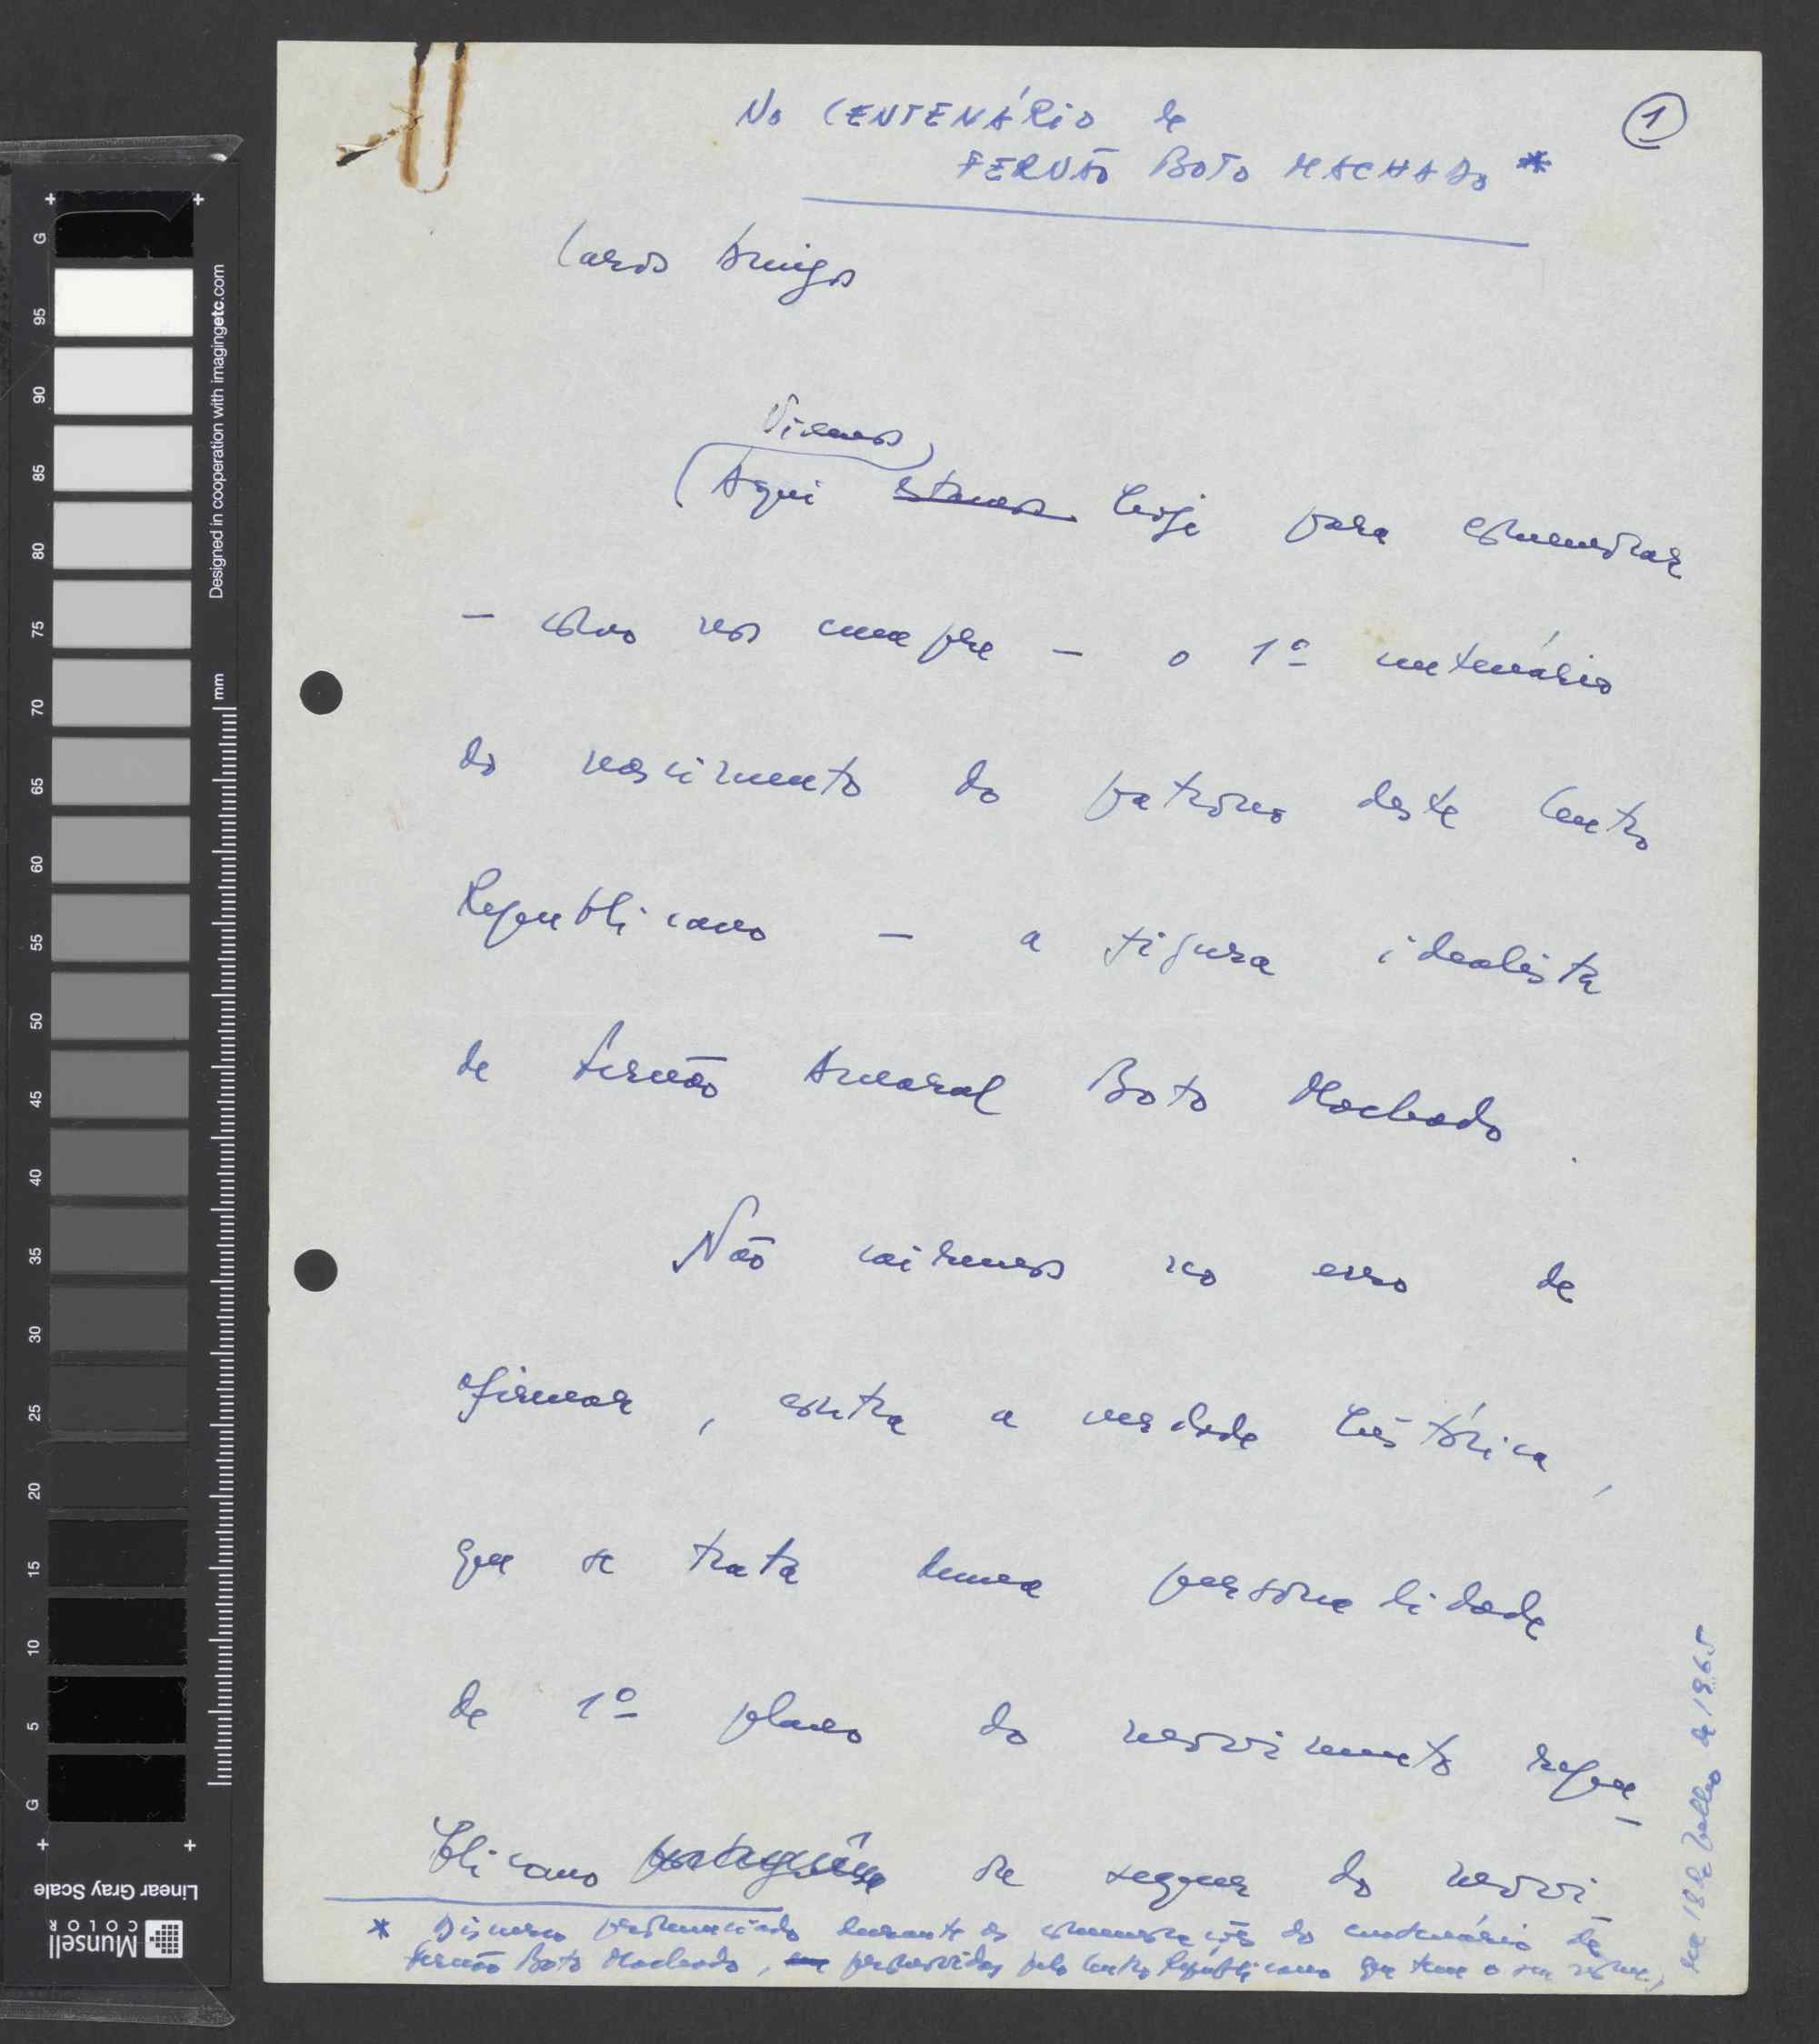 No CENTENÁRIO de
FERNÃO BOTO MACHADO *
1
Caros Amigos
Viemos
Aqui estamos hoje para comemorar
– como nos cumpre – o 1º centenário
do nascimento do patrono deste Centro
Republicano – a figura idealista
de Fernão Amaral Boto Machado.
Não cairemos no erro de
afirmar, contra a verdade histórica,
que se trata duma personalidade
de 1º plano do movimento repu–
blicano português ou sequer do movi–
* Discurso pronunciado durante as comemorações do centenário de
Fernão Boto Machado, em promovidas pelo Centro Republicano que tem o seu nome,
em 18 de Julho de 1965
G
95
90
85
80
75
70
65
60
55
50
45
40
35
30
25
20
15
10
5
G
Designed in cooperation with imagingetc.com
mm
Linear Gray Scale
Munsell
COLOR